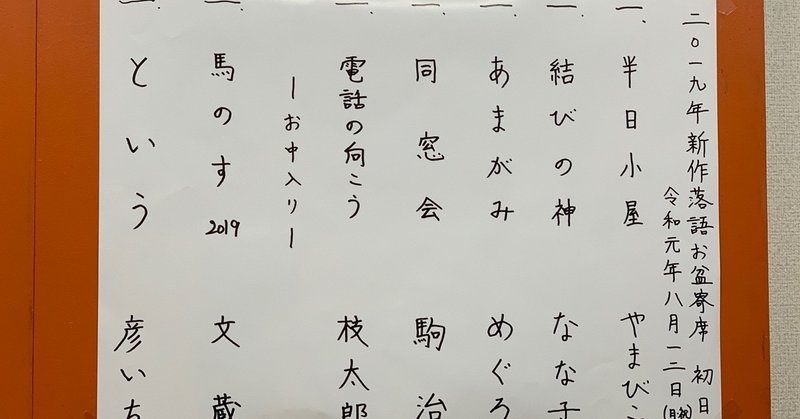 二〇一九年 新作落語お盆寄席 初日
令和元年八月一二日(月祝)
一、半日小屋 やまびこ
一、結びの神 なな子
一、あまがみ めぐろ
一、同窓会 駒治
一、電話の向こう 枝太郎
ーお中入りー
一、馬のす 2019 文蔵
一、という 彦いち